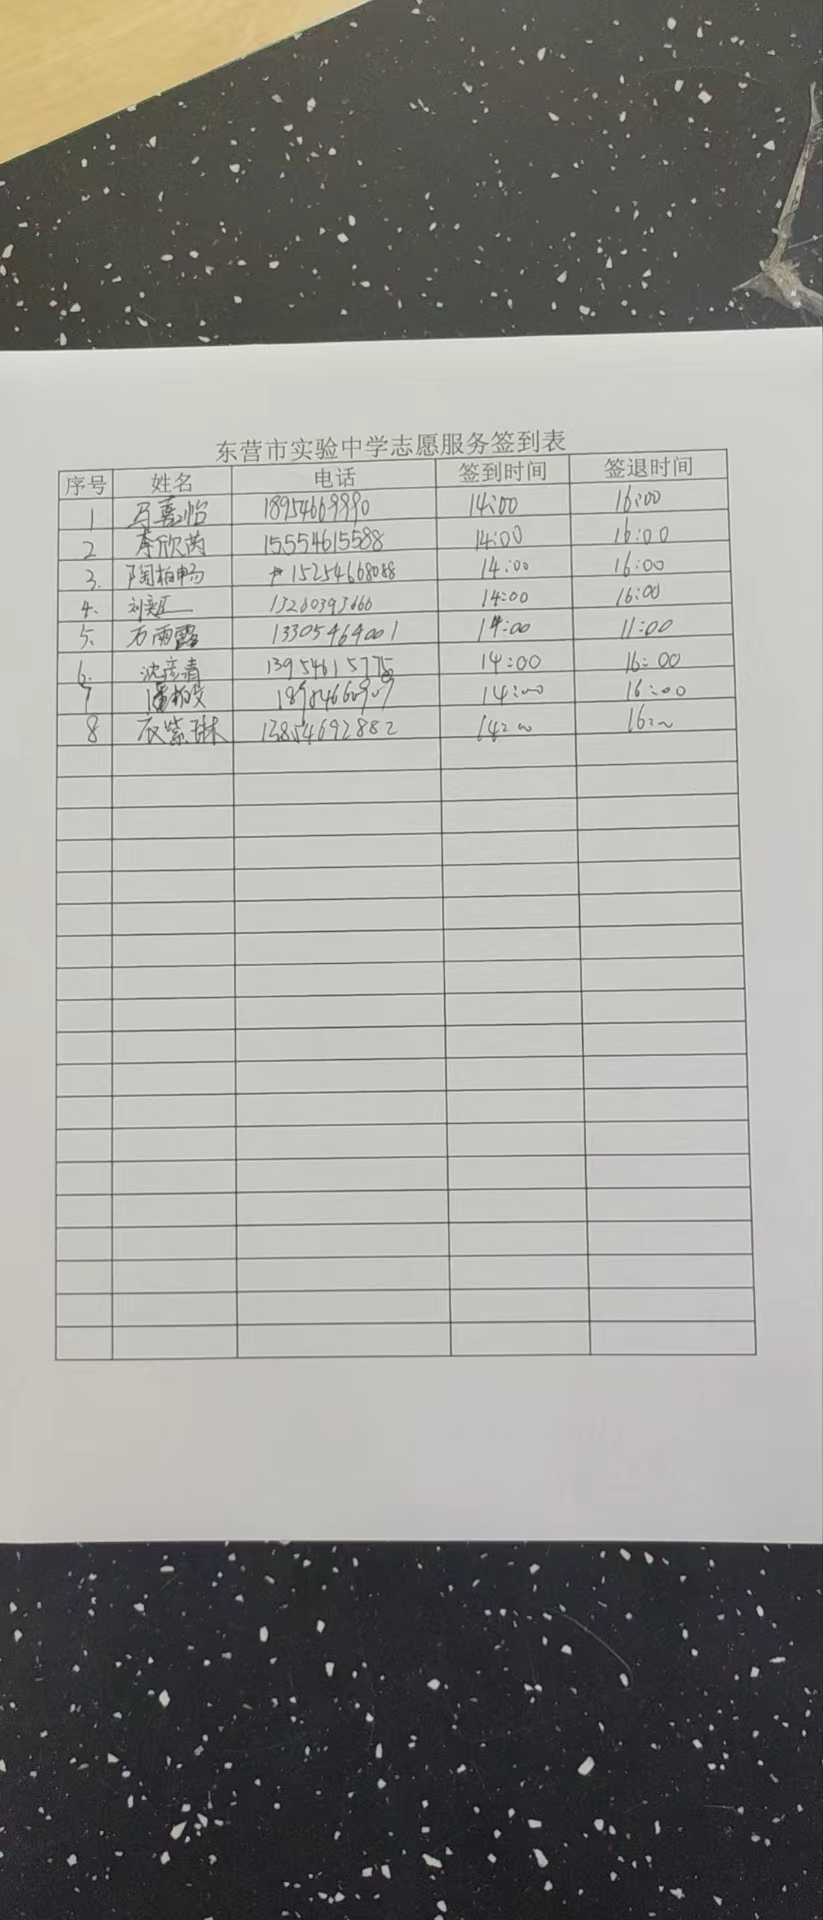 东营市实验中学志愿服务签到表
序号 姓名 电话 签到时间 签退时间
1 马嘉怡 18954669990 14:00 16:00
2 李欣芮 15554615588 14:00 16:00
3. 陶柏畅 15254668088 14:00 16:00
4. 13280393666 14:00 16:00
5. 万雨露 13305464001 14:00 11:00
6. 沈彦青 13954615775 14:00 16:00
7 14:00 16:00
8 衣紫琳 13854692882 14:00 16:00